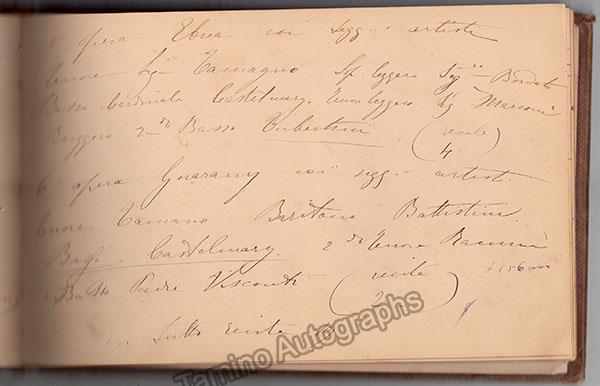 5 opera Ebrea coi segg. artisti
Tenore Sig. Tamagno Sop. leggero Sig.na Bordato
Basso Cardinale Castelmary. Tenore leggero Sig. Marconi
Ruggero 2do Basso Tubertini (recite
4.
6 opera Guarany coi segg. artisti.
Tenore Tamano Baritono Battistini.
Basso Castelmary. 2do Tenore Ramini
Basso Padre Visconti (recite
2
£156000
in Tutto recite
Tamino Autographs